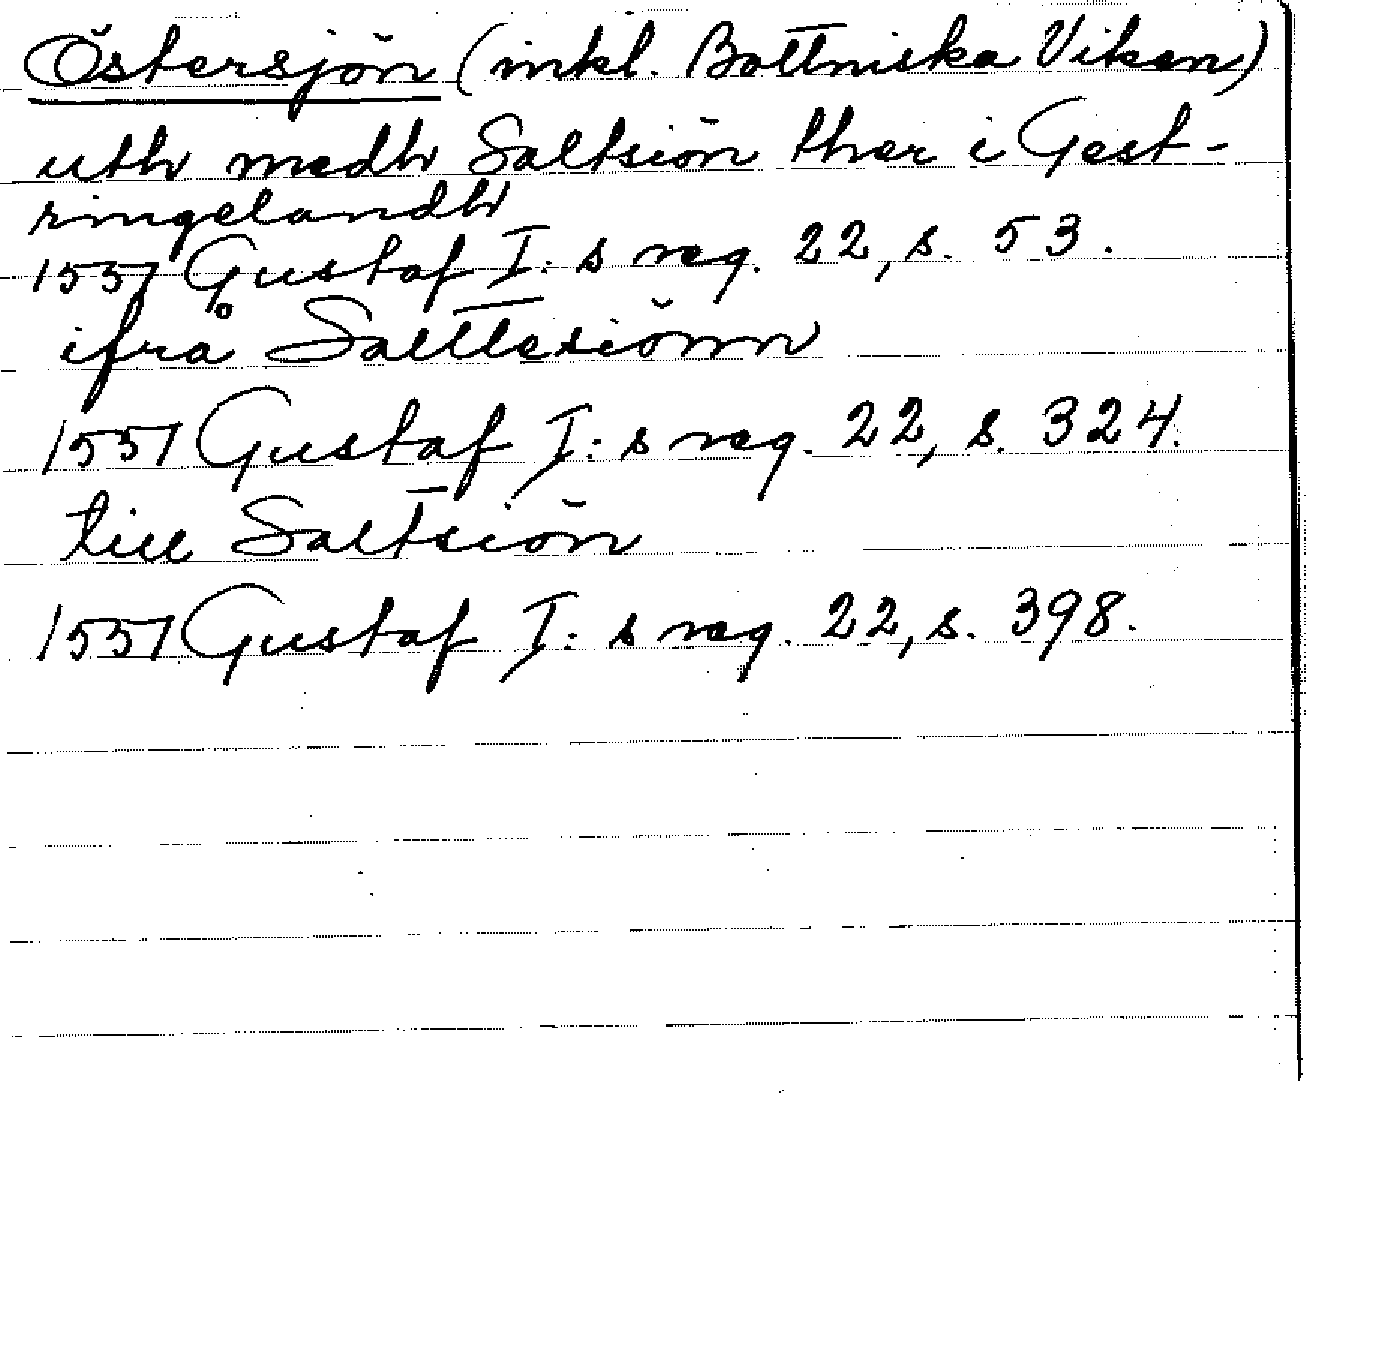 Östersjön (inkl. Bottniska Viken)
uth medh Saltsiön ther i Gest-
ringelandh
1551 Gustaf I: s reg. 22, s. 53.
ifrå Salttesiönn
1551 Gustaf I: s reg. 22, s. 324.
till Saltsiön
1551 Gustaf I: s reg. 22, s. 398.